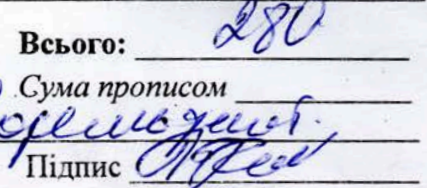 Всього: 280
Сума прописом
Підпис